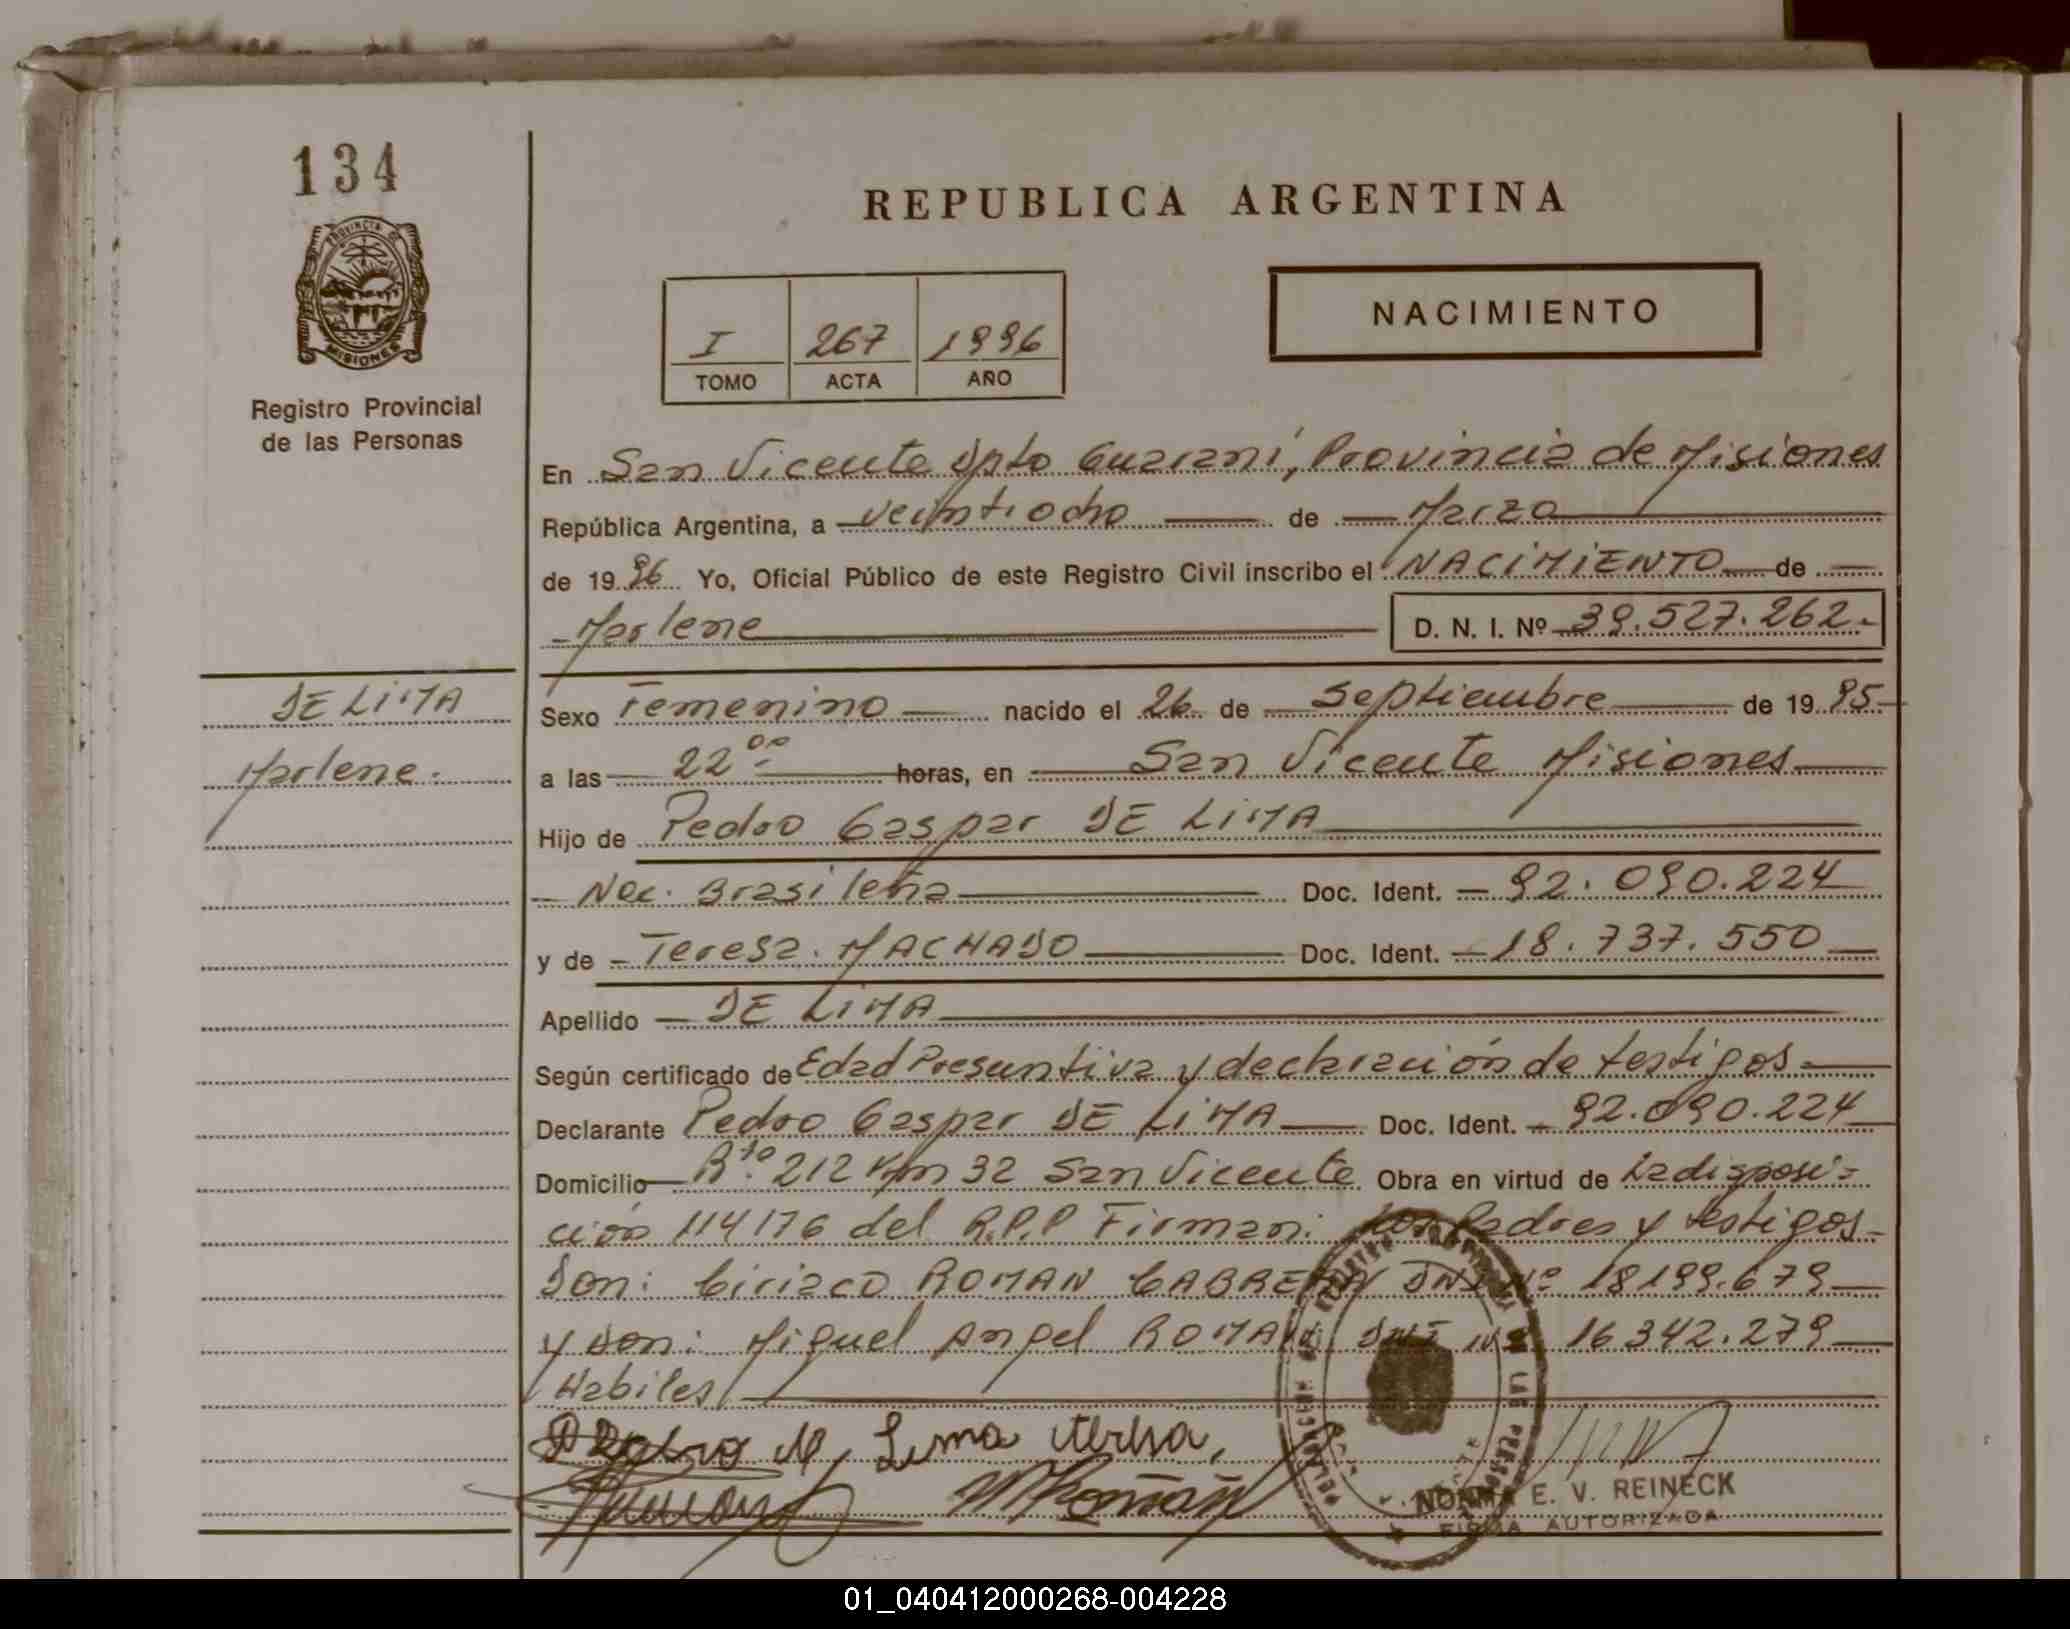 134
PROVINCIA DE
MISIONES
Registro Provincial
de las Personas
REPUBLICA ARGENTINA
I 267 1996
TOMO ACTA AÑO
NACIMIENTO
En San Vicente Dpto Guaraní, Provincia de Misiones
República Argentina, a veintiocho de Marzo
de 1996 Yo, Oficial Público de este Registro Civil inscribo el NACIMIENTO de
Marlene D. N. I. Nº 39.527.262.-
DE LIMA
Marlene.
Sexo Femenino nacido el 26 de Septiembre de 1995
a las 22⁰⁰ horas, en San Vicente Misiones
Hijo de Pedro Gaspar DE LIMA
Nac. Brasileña Doc. Ident. 92.090.224
y de Teresa. MACHADO Doc. Ident. 18.737.550
Apellido DE LIMA
Según certificado de Edad Presuntiva y declaración de testigos
Declarante Pedro Gaspar DE LIMA Doc. Ident. 92.090.224
Domicilio R. 212 Km 32 San Vicente Obra en virtud de La disposi-
ción 114/76 del R.P.P Firman: los Padres y testigos
Don: Ciriaco ROMAN CABRERA DNI Nº 18199.679
y Don: Miguel Angel ROMAN DNI Nº 16342.279
Habiles
Lima teresa,
MRoman
NORMA E. V. REINECK
FIRMA AUTORIZADA
01_040412000268-004228